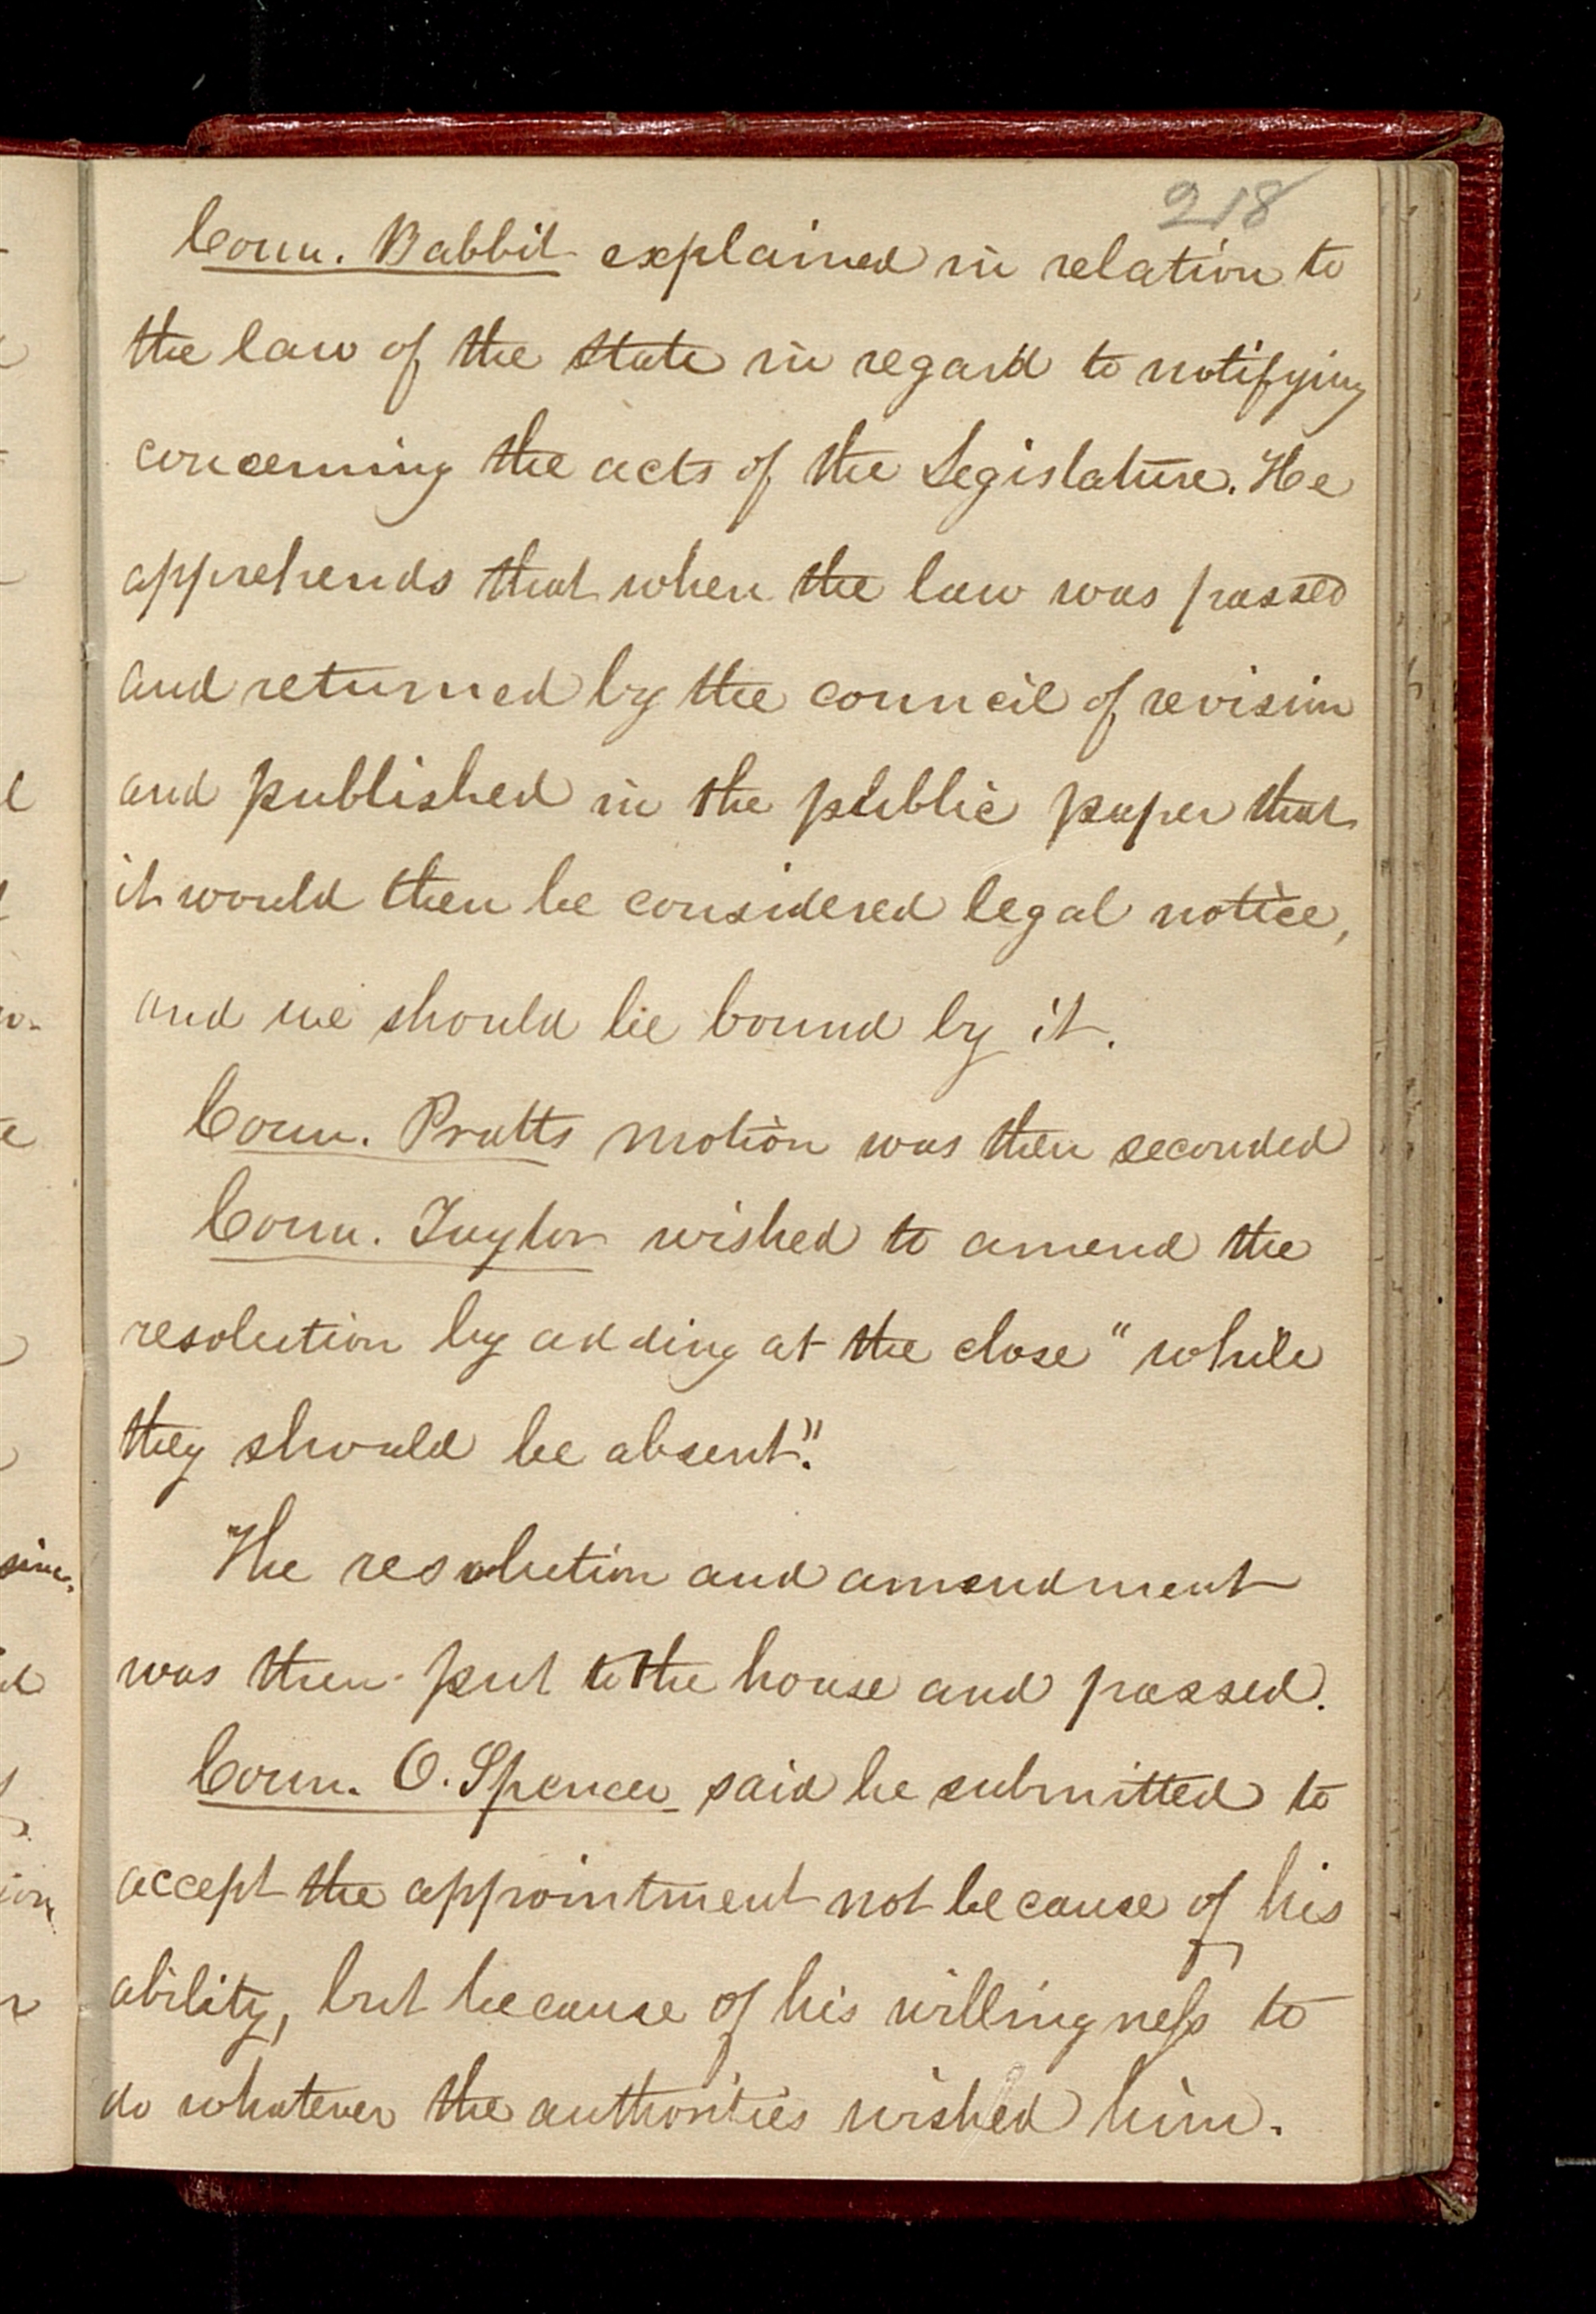 218
Coun. Babbit explained in relation to
the law of the state in regard to notifying
concerning the acts of the Legislature. He
apprehends that when the law was passed
and returned by the council of revision
and published in the public paper that
it would then be considered legal notice,
and we should be bound by it.
Coun. Pratts motion was then seconded
Coun. Taylor wished to amend the
resolution by adding at the close "while
they should be absent."
The resolution and amendment
was then put to the house and passed.
Coun. O. Spencer said he submitted to
accept the appointment not because of his
ability, but because of his willingness to
do whatever the authorities wished him.